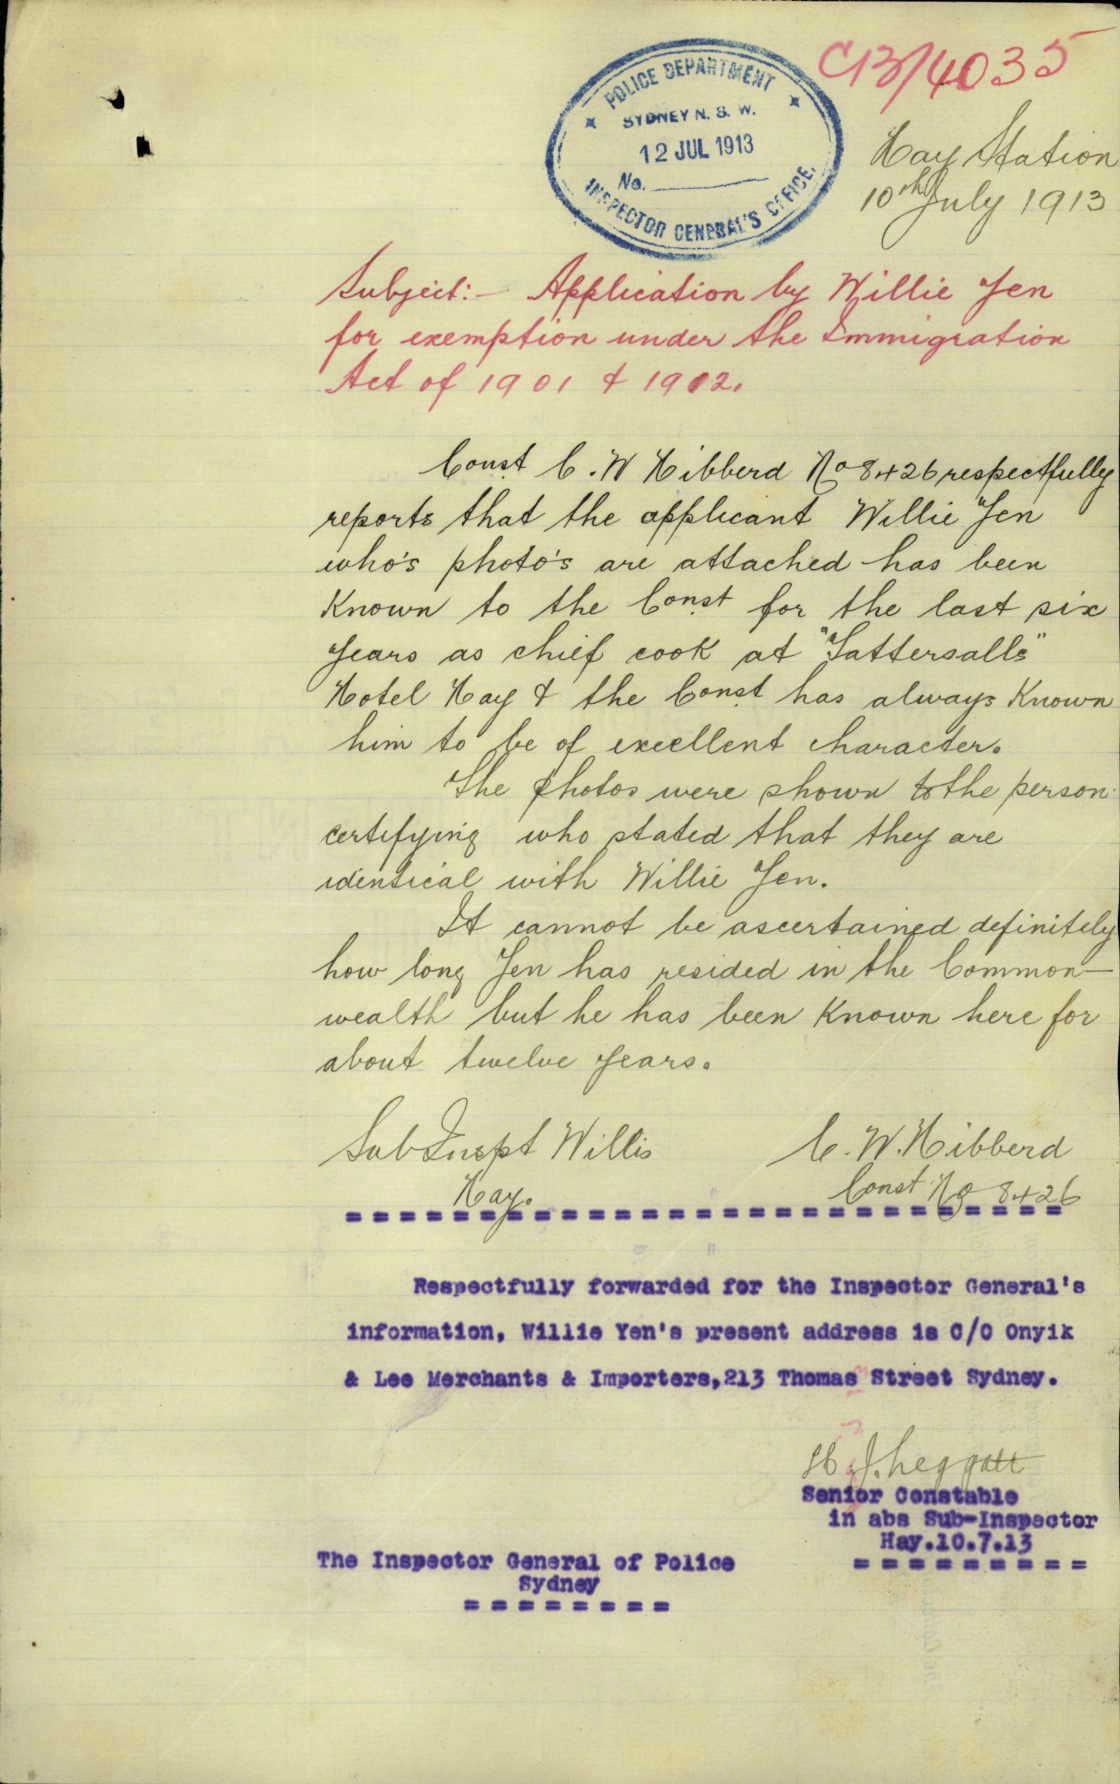 C13/4035
POLICE DEPARTMENT
SYDNEY N. S. W.
12 JUL 1913
No.
INSPECTOR GENERAL'S OFFICE.
Hay Station
10th July 1913
Subject:- Application by Willie Yen
for exemption under the Immigration
Act of 1901 & 1912.
Const C. W Hibberd No 8426 respectfully
reports that the applicant Willie Yen
who's photo's are attached has been
Known to the Const for the last six
years as chief cook at "Tattersalls"
Hotel Hay & the Const has always Known
him to be of excellent character.
The photos were shown to the person
certifying who stated that they are
identical with Willie Yen.
It cannot be ascertained definitely
how long Yen has resided in the Common-
wealth but he has been Known here for
about twelve years.
Sub Inspt Willis
Hay.
C. W. Hibberd
Const No 8426
Respectfully forwarded for the Inspector General's
information, Willie Yen's present address is C/O Onyik
& Lee Merchants & Importers,213 Thomas Street Sydney.
Senior Constable
in abs Sub-Inspector
Hay.10.7.13
The Inspector General of Police
Sydney